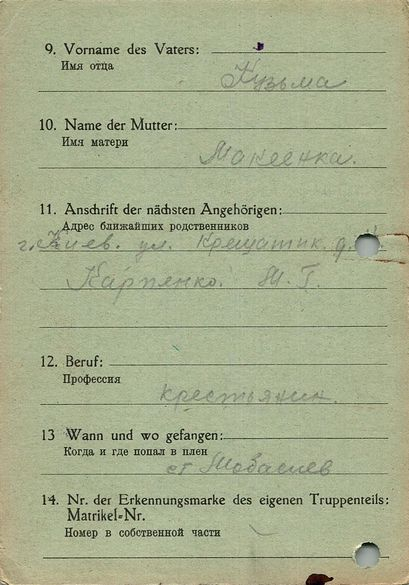 9. Vorname des Vaters:
Имя отца
Кузьма
10. Name der Mutter:
Имя матери
Макеенка.
11. Anschrift der nächsten Angehörigen:
Адрес ближайших родственников
г. Киев. ул. Крещатик. д.
Карпенко. М. Г.
12. Beruf:
Профессия
крестьянин.
13 Wann und wo gefangen:
Когда и где попал в плен
ст
14. Nr. der Erkennungsmarke des eigenen Truppenteils:
Matrikel-Nr.
Номер в собственной части